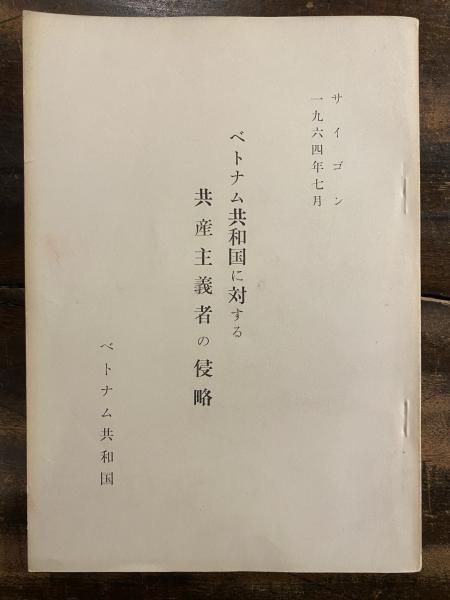 サイゴン
一九六四年七月
ベトナム共和国に対する
共産主義者の侵略
ベトナム共和国